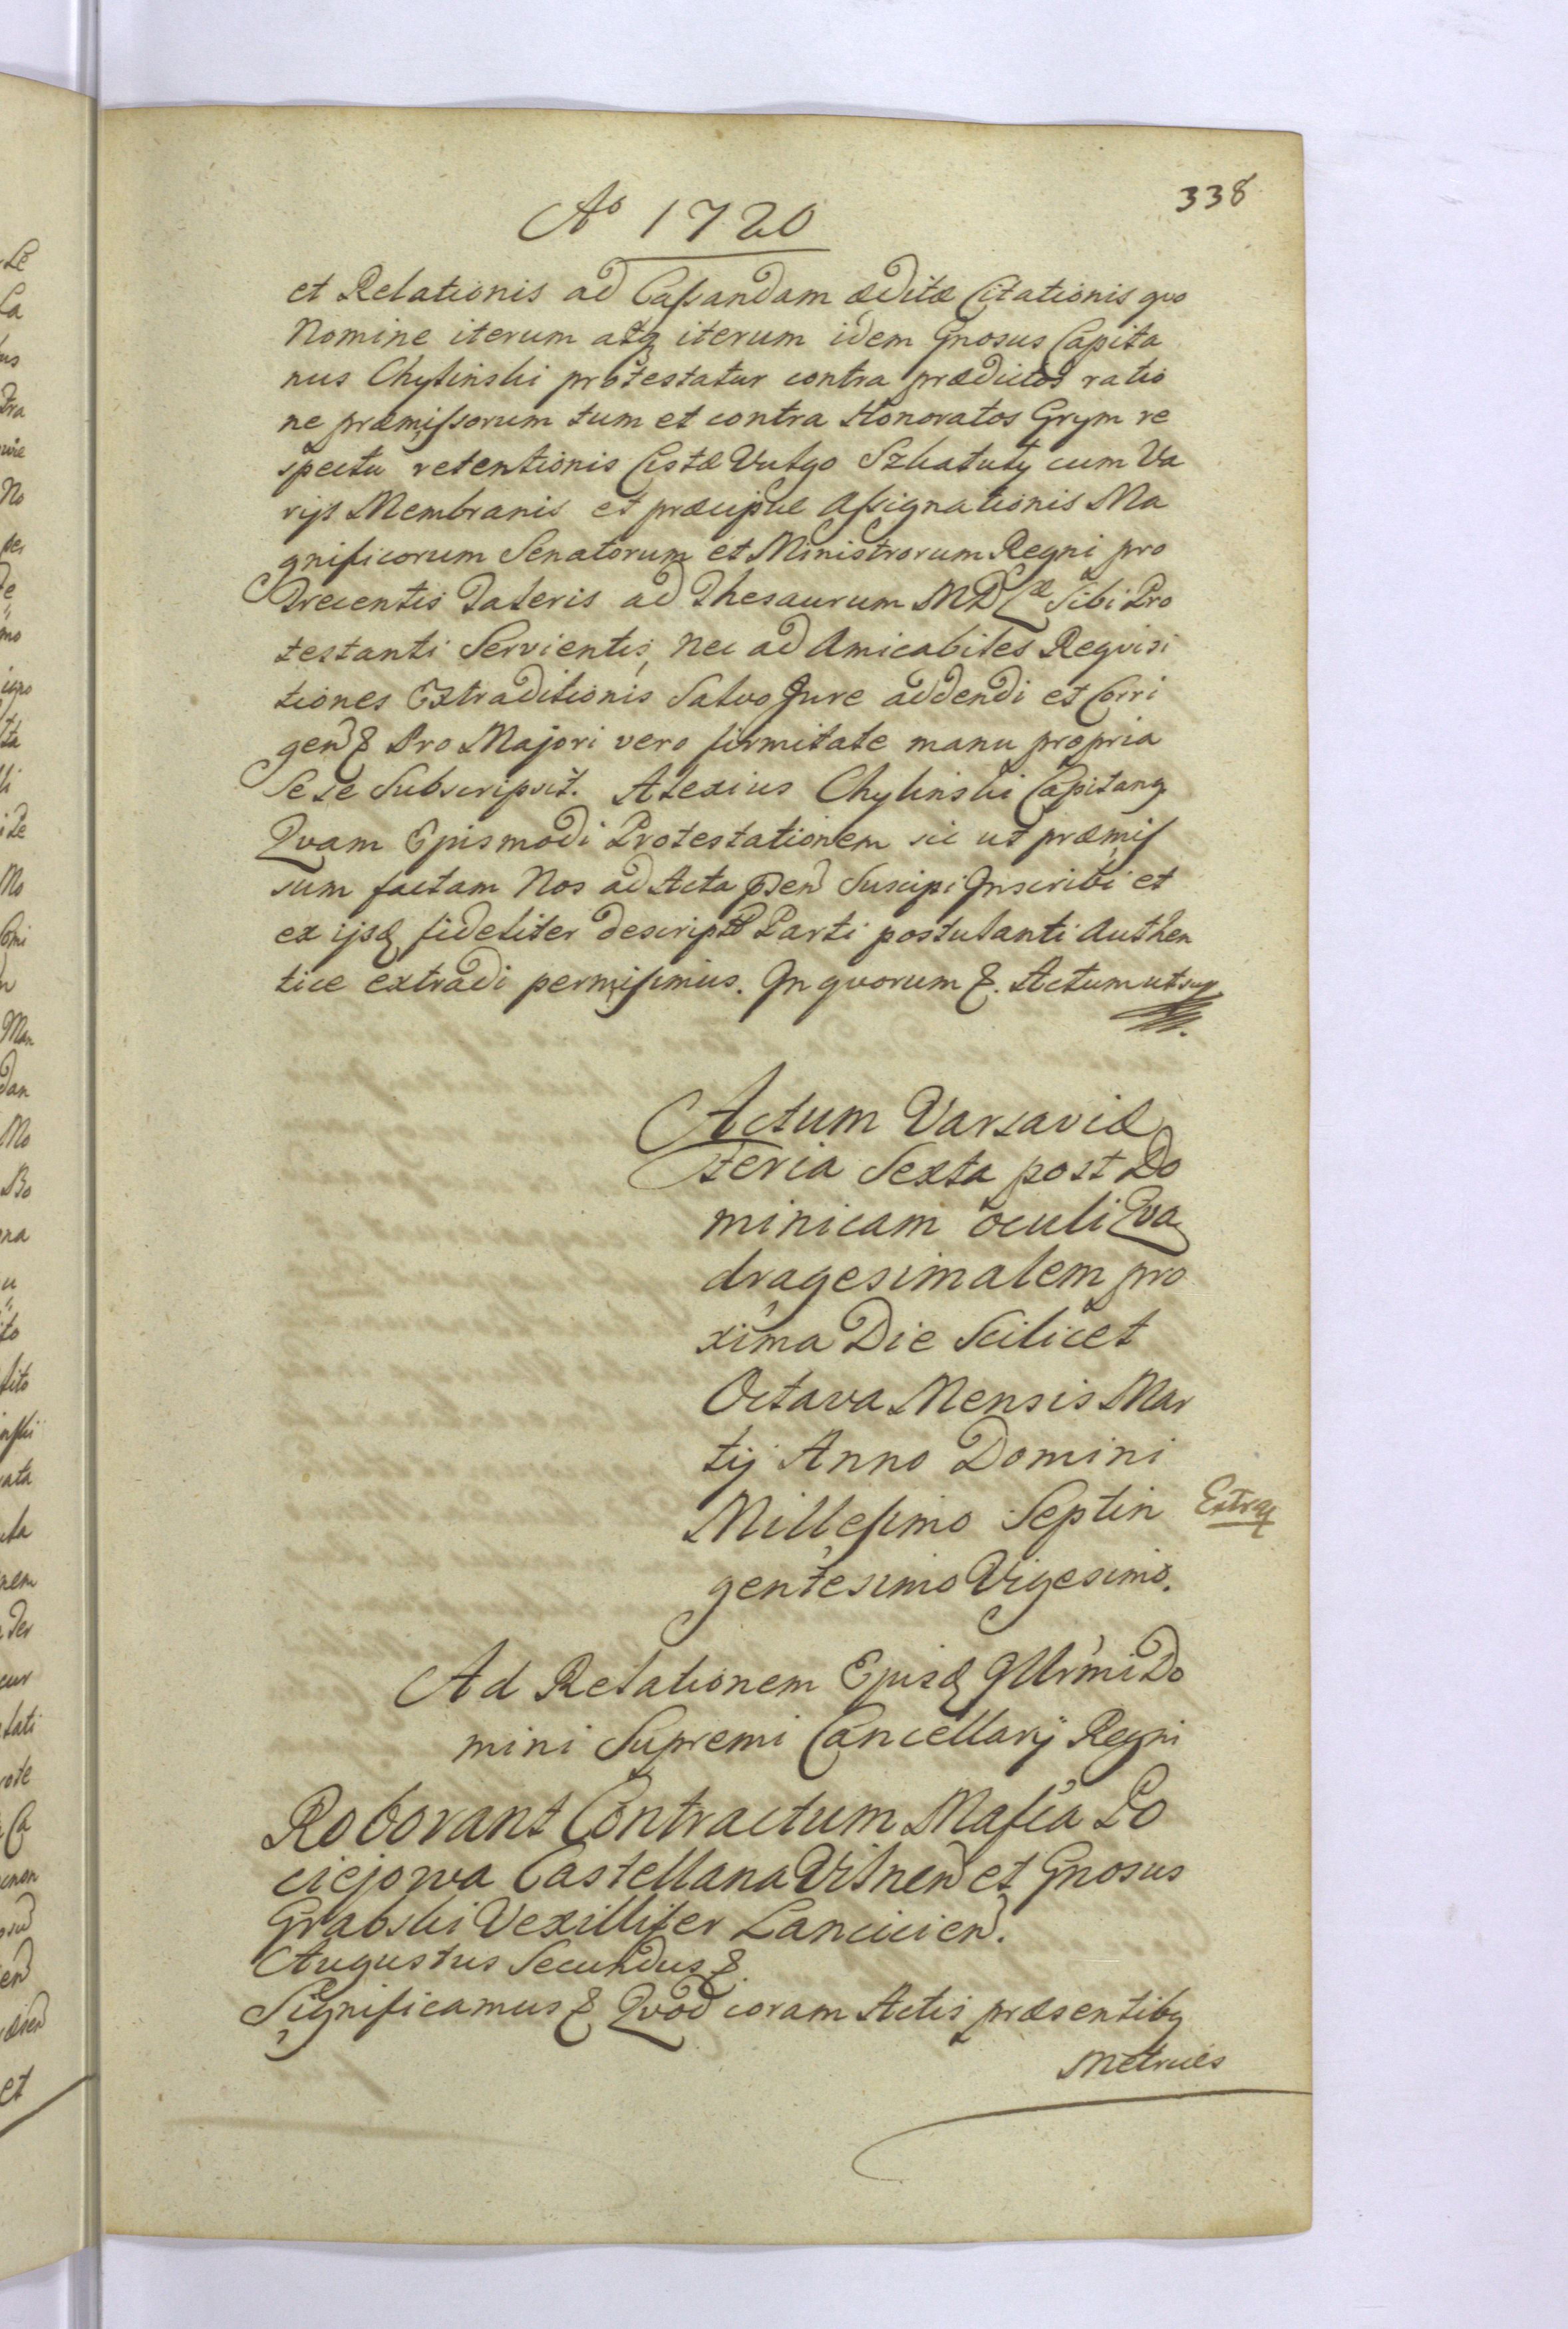 338
Ao 1720
et Relationis ad Cassandam æditæ Citationis quo
Nomine iterum atq iterum idem Gnosus Capita
nus Chylinski protestatur contra prædictos ratio
ne præmissorum tum et contra Honoratos Grym re
spectu retentionis Cistæ Vulgo Szkatuły cum Va
rijs Membranis et præcipue Assignationis Ma
gnificorum Senatorum et Ministrorum Regni pro
Trecentis Taleris ad Thesaurum MDLæ Sibi Pro
testanti Servientis, nec ad Amicabiles Requisi
tiones Extraditionis Salvo Jure addendi et Corri
gend & Pro Majori vero firmitate manu propria
Sese Subscripsit. Alexius Chylinski Capitang
Quam Ejusmodi Protestationem sic ut præmis
sum factam Nos ad Acta psen Suscipi Inscribi et
ex ijsq fideliter descript Parti postulanti Authen
tice extradi permisimus. In quorum &. Actum ut sup
Actum Varsaviæ
feria Sexta post Do
minicam oculi Qua
dragesimalem pro
xima Die Scilicet
Octava Mensis Mar
tij Anno Domini
Millesimo Septin
gentesimo Vigesimo.
Extra
Ad Relationem Ejusd Illrmi Do
mini Supremi Cancellarij Regni
Roborant Contractum Mafica Po
ciejowa Castellana Vilnen et Gnosus
Grabski Vexillifer Lancicien.
Augustus Secundus &
Significamus & Quod coram Actis præsentibq
Metrices